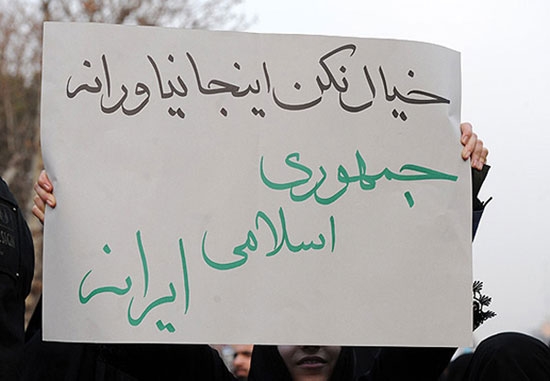 خیال نکن اینجا نیاورانه
جمهوری
اسلامی
ایرانه